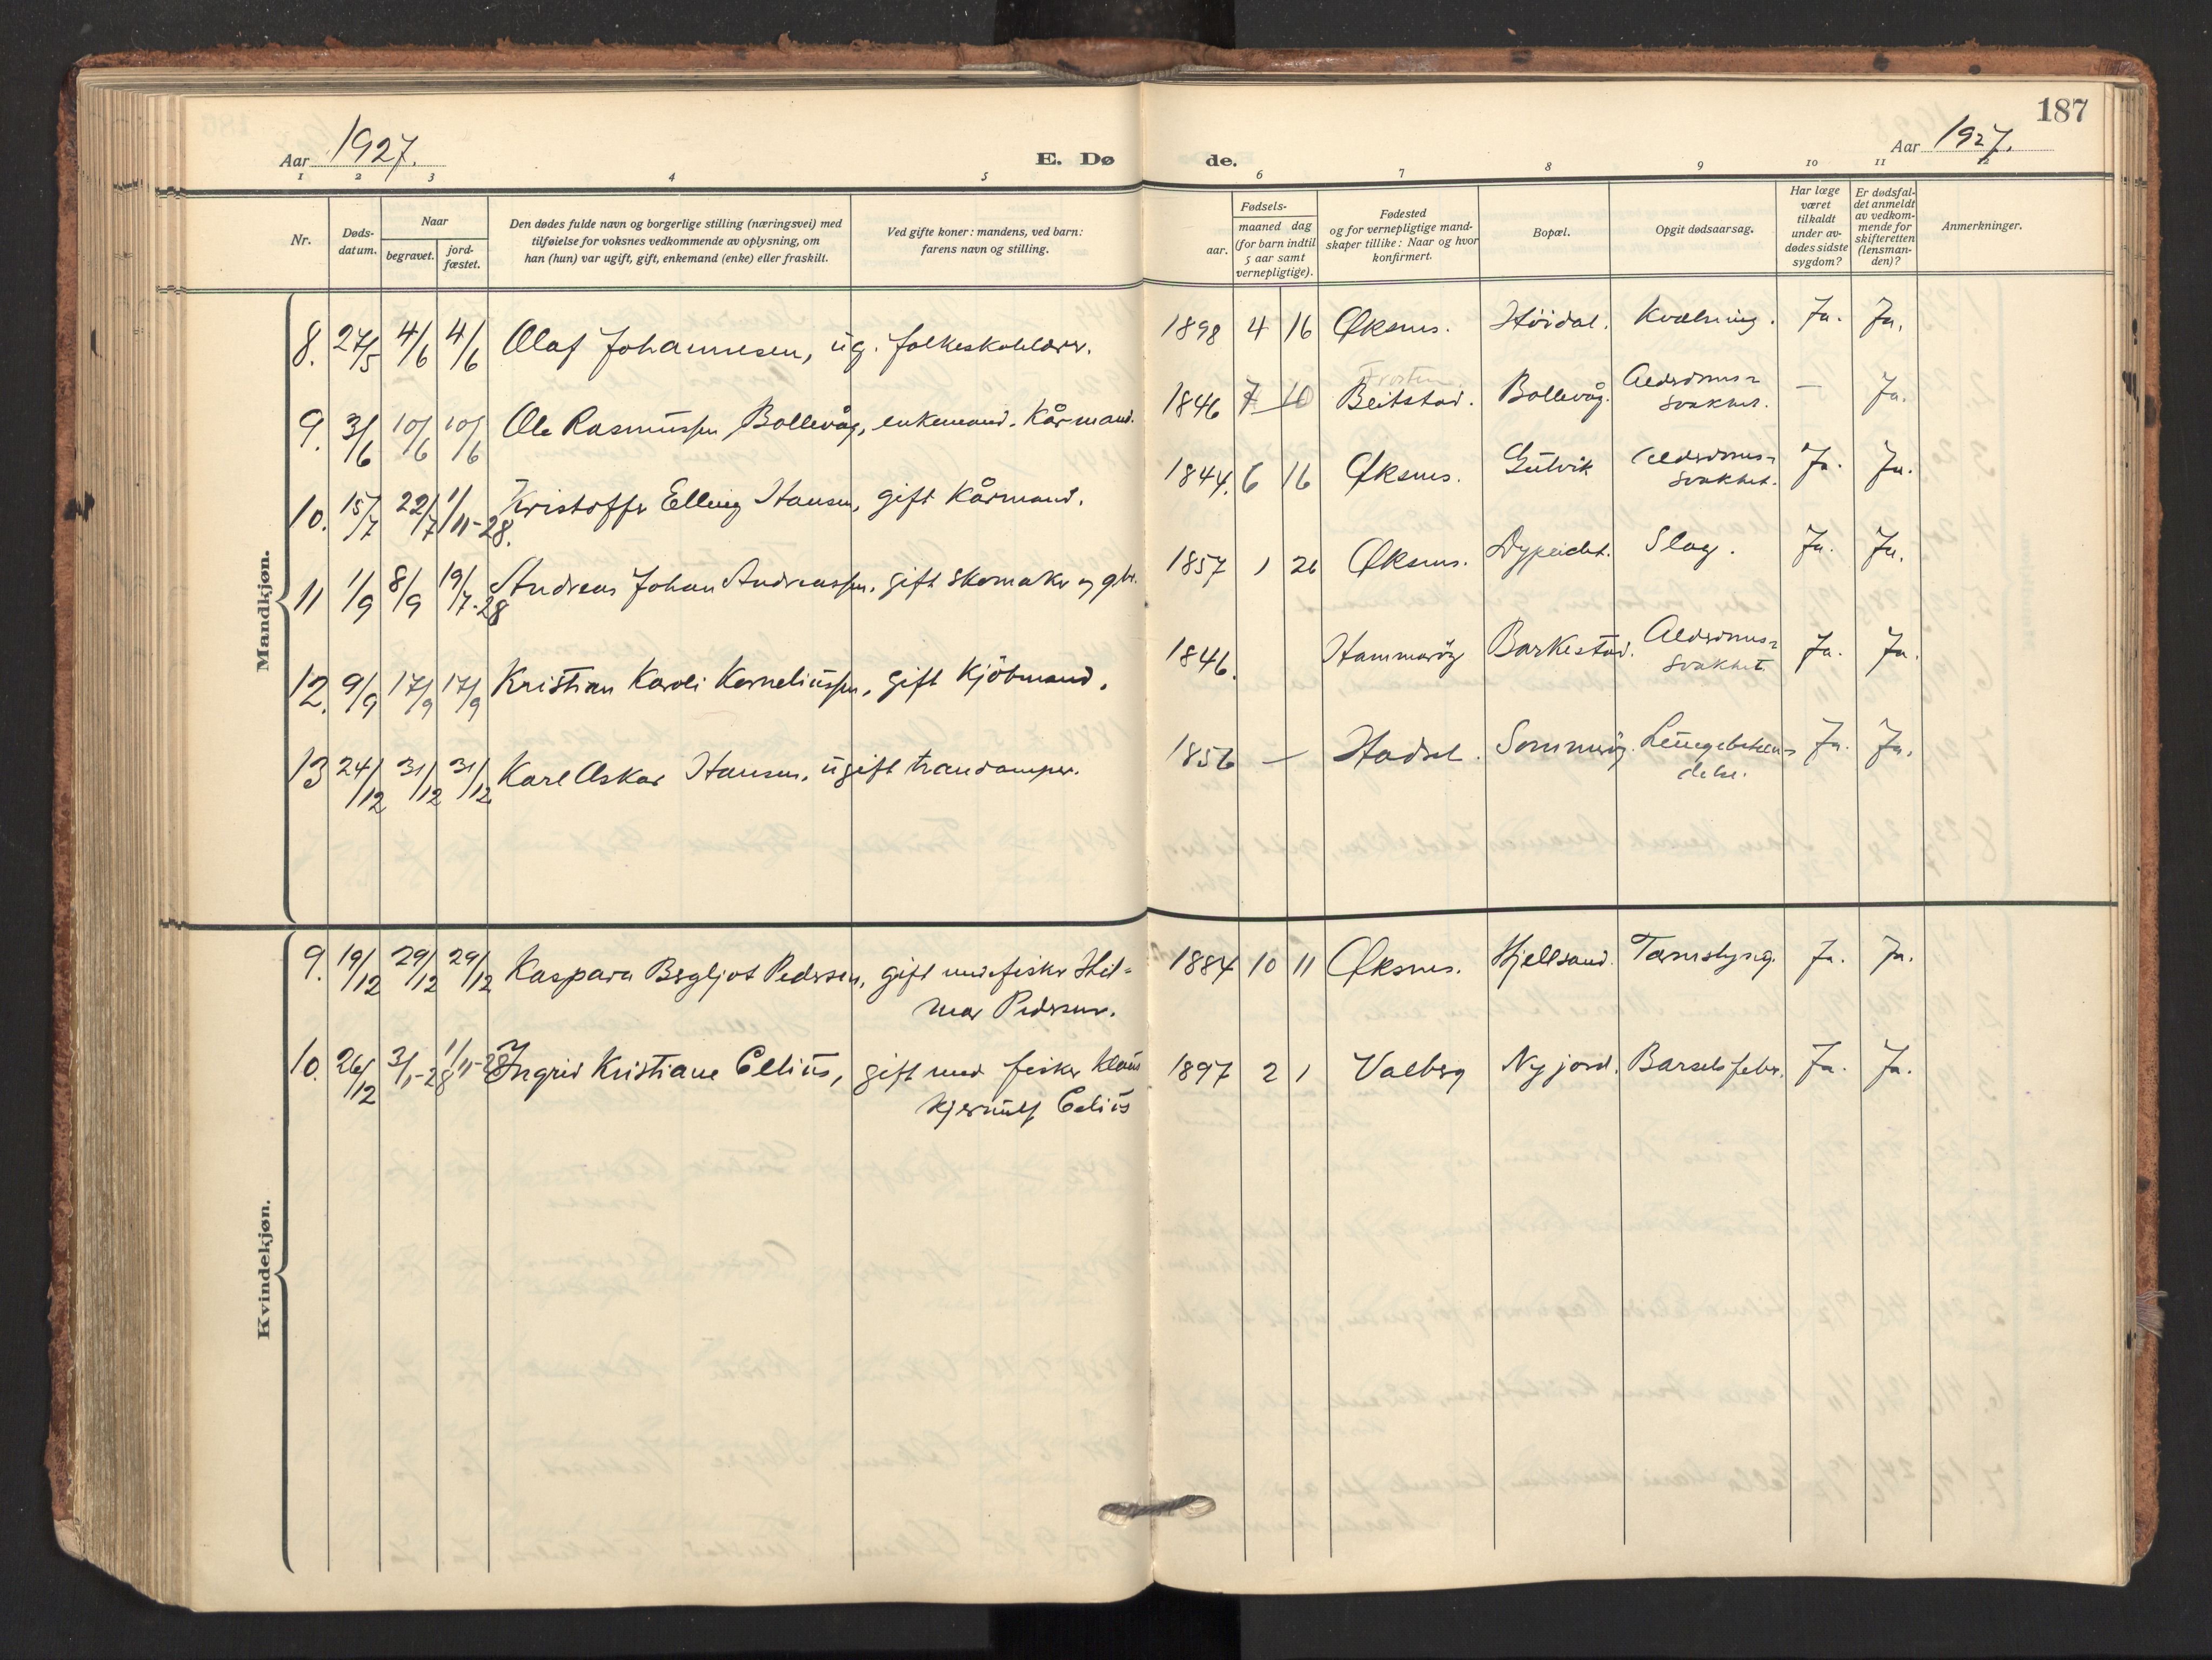 187
Aar 1927.
E. Dø
de.
Aar 1927.
1 2 3 4 5 6 7 8 9 10 11 12
Nr.
Døds-
datum.
Naar
begravet.
jord-
fæstet.
Den dødes fulde navn og borgerlige stilling (næringsvei) med
tilføielse for voksnes vedkommende av oplysning, om
han (hun) var ugift, gift, enkemand (enke) eller fraskilt.
Ved gifte koner: mandens, ved barn:
farens navn og stilling.
Fødsels-
aar.
maaned dag
(for barn indtil
5 aar samt
vernepligtige).
Fødested
og for vernepligtige mand-
skaper tillike: Naar og hvor
konfirmert.
Bopæl.
Opgit dødsaarsag.
Har læge
været
tilkaldt
under av-
dødes sidste
sygdom?
Er dødsfal-
det anmeldt
av vedkom-
mende for
skifteretten
(lensman-
den)?
Anmerkninger.
Mandkjøn.
8. 27/5 4/6 4/6 Olaf Johannesen, ug. folkeskolelærer. 1898 4 16 Øksnes. Höidal. Kvælning. Ja. Ja.
Trøsten
9. 3/6 10/6 10/6 Ole Rasmussen Bollevåg, enkemand. Kårmand. 1846 7 10 Beitstad. Bollevåg. Alderdoms=
svakhet. — Ja.
10. 15/7 22/7 1/11-28. Kristoffer Elling Hansen, gift Kårmand. 1844. 6 16 Øksnes. Gulvik Alderdoms=
svakhet. Ja. Ja.
11 1/9 8/9 19/7-28 Andreas Johan Andreassen, gift skomaker og gbr. 1857 1 26 Øksnes. Dypeidet. Slag. Ja. Ja.
12. 9/9 17/9 17/9 Kristian Karoli Korneliussen, gift Kjöbmand. 1846. Hammeröy Barkestad. Alderdoms=
svakhet Ja. Ja.
13 24/12 31/12 31/12 Karl Oskar Hansen, ugift trandamper. 1856 — Hadsel. Sommeröy. Lungebeten=
delse. Ja. Ja.
Kvindekjøn.
9. 19/12 29/12 29/12 Kaspara Bergljot Pedersen, gift med fisker Hil=
mar Pedersen. 1884 10 11 Øksnes. Hjellsand. Tarmslyng. Ja. Ja.
10. 26/12 3/1-28 1/11-28 Ingrid Kristiane Celius, gift med fisker Klaus
Hjernulf Celius 1897 2 1 Valberg Nyjord. Barselsfeber. Ja. Ja.